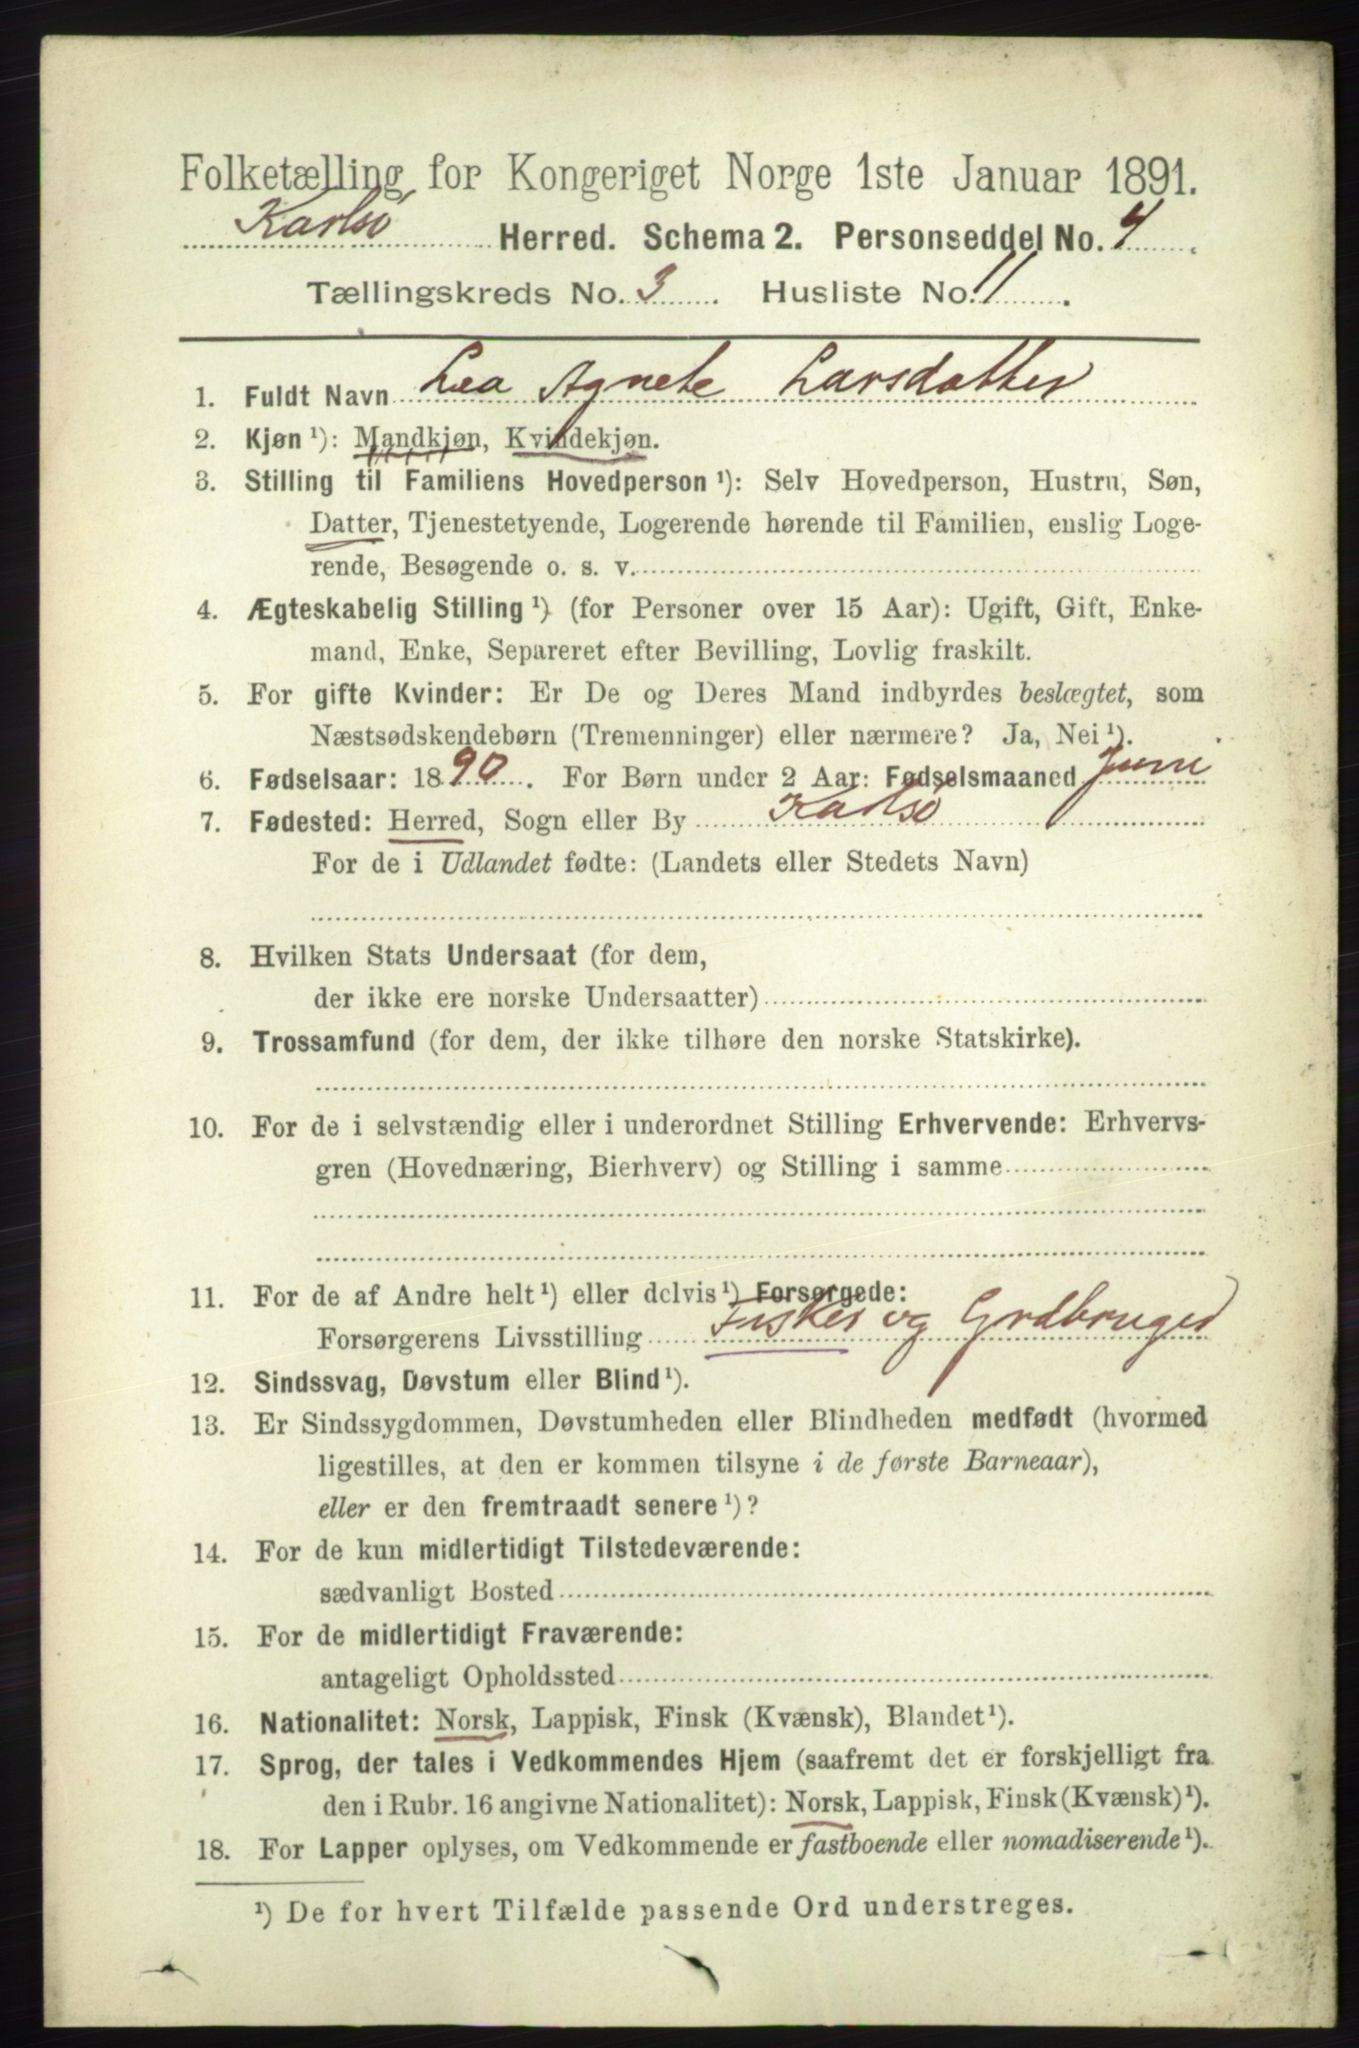 Folketælling for Kongeriget Norge 1ste Januar 1891.
Karlsø Herred. Schema 2. Personseddel No. 4
Tællingskreds No. 3. Husliste No. 11.
1. Fuldt Navn Lea Agnete Larsdatter
2. Kjøn ¹): Mandkjøn, Kvindekjøn.
3. Stilling til Familiens Hovedperson ¹): Selv Hovedperson, Hustru, Søn,
Datter, Tjenestetyende, Logerende hørende til Familien, enslig Loge-
rende, Besøgende o. s. v.
4. Ægteskabelig Stilling ¹) (for Personer over 15 Aar): Ugift, Gift, Enke-
mand, Enke, Separeret efter Bevilling, Lovlig fraskilt.
5. For gifte Kvinder: Er De og Deres Mand indbyrdes beslægtet, som
Næstsødskendebørn (Tremenninger) eller nærmere? Ja, Nei ¹).
6. Fødselsaar: 1890. For Børn under 2 Aar: Fødselsmaaned Juni
7. Fødested: Herred, Sogn eller By Karlsø
For de i Udlandet fødte: (Landets eller Stedets Navn)
8. Hvilken Stats Undersaat (for dem,
der ikke ere norske Undersaatter)
9. Trossamfund (for dem, der ikke tilhøre den norske Statskirke).
10. For de i selvstændig eller i underordnet Stilling Erhvervende: Erhvervs-
gren (Hovednæring, Bierhverv) og Stilling i samme
11. For de af Andre helt ¹) eller delvis ¹) Forsørgede:
Forsørgerens Livsstilling Fisker og Grdbruger
12. Sindssvag, Døvstum eller Blind ¹).
13. Er Sindssygdommen, Døvstumheden eller Blindheden medfødt (hvormed
ligestilles, at den er kommen tilsyne i de første Barneaar),
eller er den fremtraadt senere ¹)?
14. For de kun midlertidigt Tilstedeværende:
sædvanligt Bosted
15. For de midlertidigt Fraværende:
antageligt Opholdssted
16. Nationalitet: Norsk, Lappisk, Finsk (Kvænsk), Blandet ¹).
17. Sprog, der tales i Vedkommendes Hjem (saafremt det er forskjelligt fra
den i Rubr. 16 angivne Nationalitet): Norsk, Lappisk, Finsk (Kvænsk) ¹).
18. For Lapper oplyses, om Vedkommende er fastboende eller nomadiserende ¹).
¹) De for hvert Tilfælde passende Ord understreges.